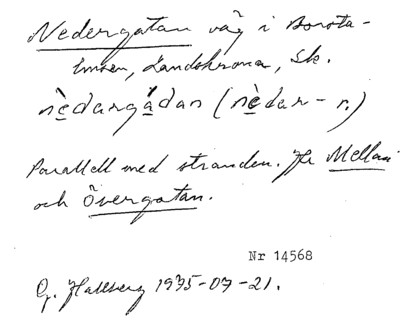 Nedergatan väg i Borsta-
husen, Landskrona, Sk.
nèdargádan (nèdar- r.)
Parallell med stranden. Jfr Mellan
och Övergatan.
Nr 14568
G. Hallberg 1975-07-21.